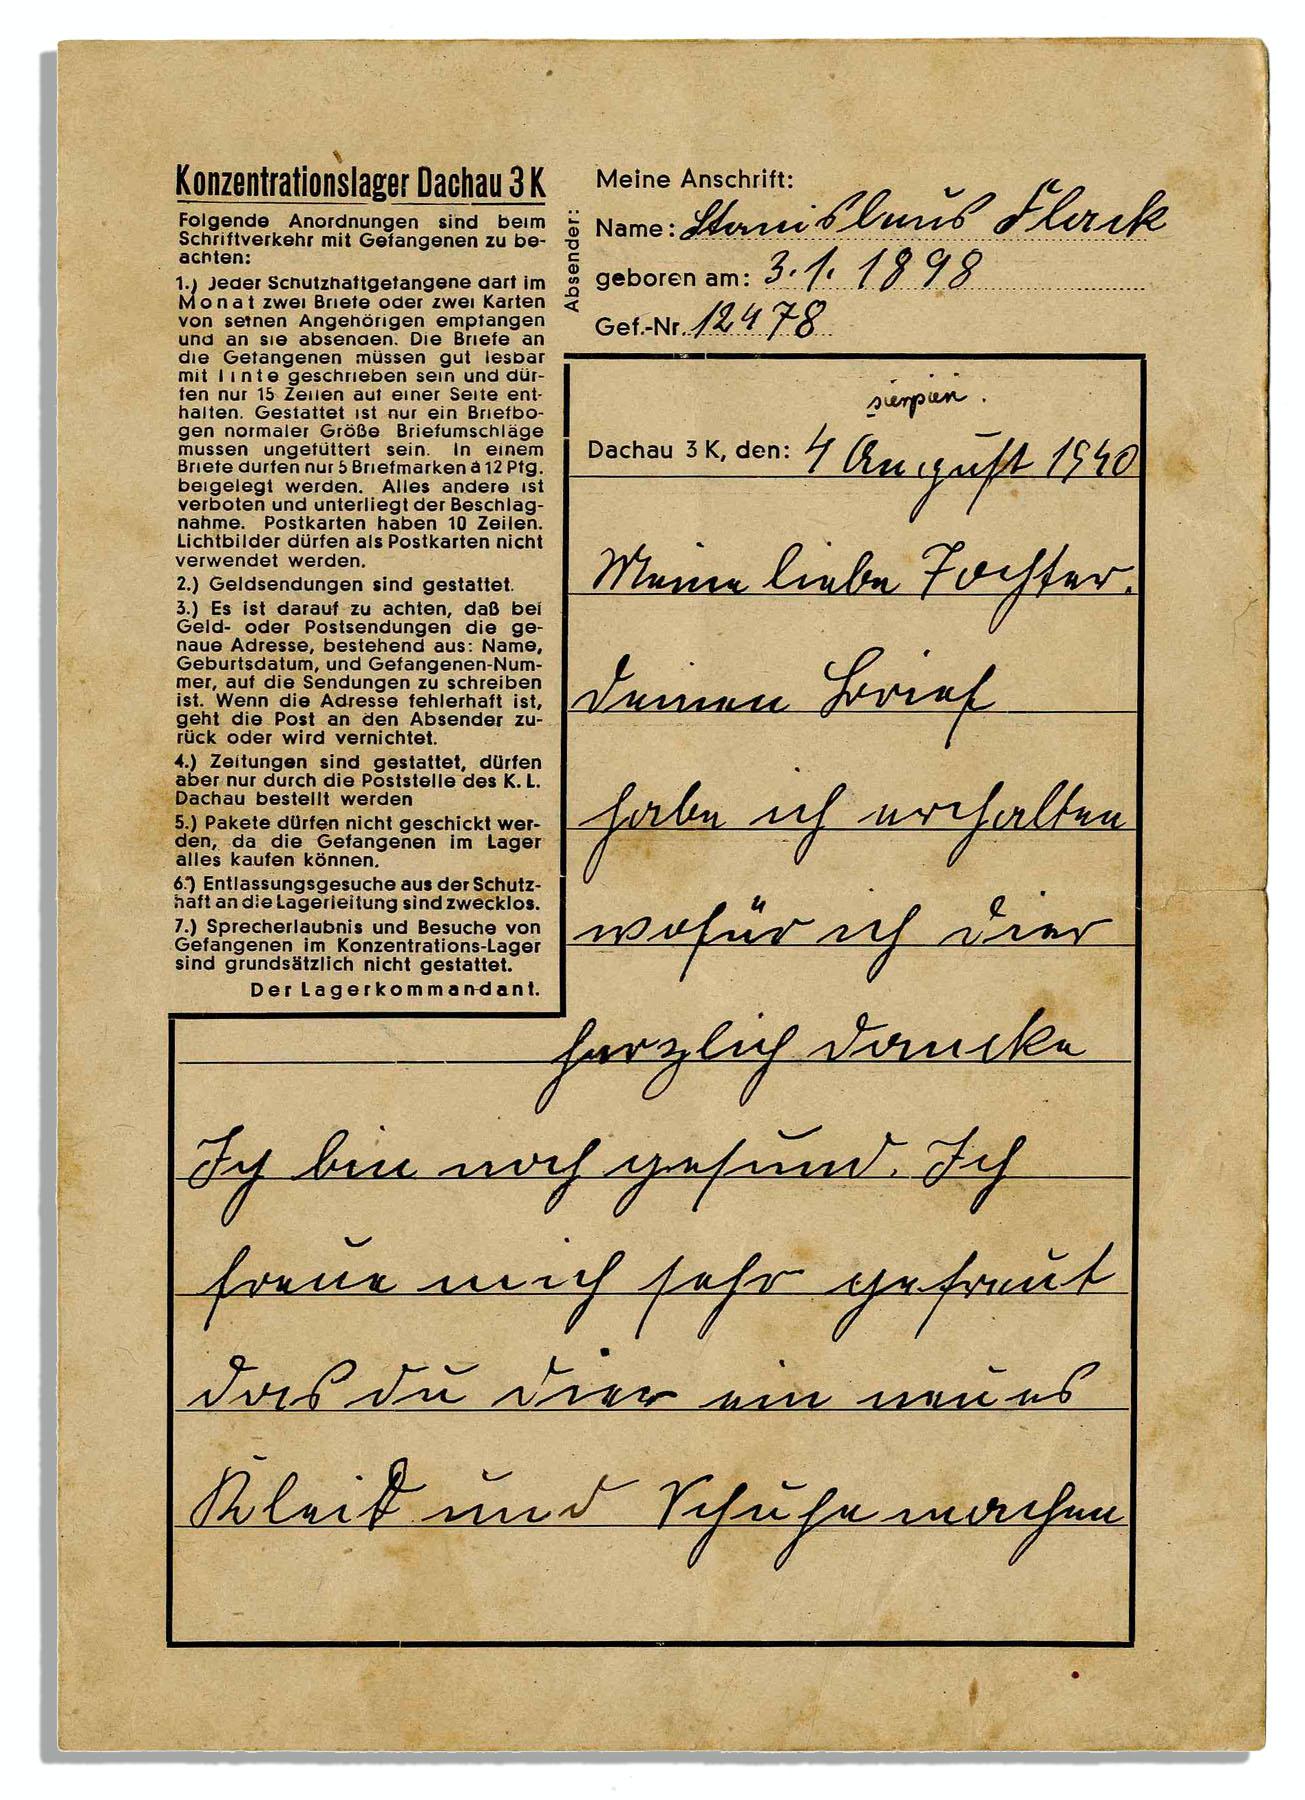 Konzentrationslager Dachau 3 K
Folgende Anordnungen sind beim
Schriftverkehr mit Gefangenen zu be-
achten:
1.) Jeder Schutzhaftgefangene darf im
Monat zwei Briefe oder zwei Karten
von seinen Angehörigen empfangen
und an sie absenden. Die Briefe an
die Gefangenen müssen gut lesbar
mit Tinte geschrieben sein und dür-
fen nur 15 Zeilen auf einer Seite ent-
halten. Gestattet ist nur ein Briefbo-
gen normaler Größe Briefumschläge
mussen ungefüttert sein. In einem
Briefe durfen nur 5 Briefmarken à 12 Pfg.
beigelegt werden. Alles andere ist
verboten und unterliegt der Beschlag-
nahme. Postkarten haben 10 Zeilen.
Lichtbilder dürfen als Postkarten nicht
verwendet werden.
2.) Geldsendungen sind gestattet.
3.) Es ist darauf zu achten, daß bei
Geld- oder Postsendungen die ge-
naue Adresse, bestehend aus: Name,
Geburtsdatum, und Gefangenen-Num-
mer, auf die Sendungen zu schreiben
ist. Wenn die Adresse fehlerhaft ist,
geht die Post an den Absender zu-
rück oder wird vernichtet.
4.) Zeitungen sind gestattet, dürfen
aber nur durch die Poststelle des K. L.
Dachau bestellt werden
5.) Pakete dürfen nicht geschickt wer-
den, da die Gefangenen im Lager
alles kaufen können.
6.) Entlassungsgesuche aus der Schutz-
haft an die Lagerleitung sind zwecklos.
7.) Sprecherlaubnis und Besuche von
Gefangenen im Konzentrations-Lager
sind grundsätzlich nicht gestattet.
Der Lagerkommandant.
Absender:
Meine Anschrift:
Name: Stanislaus Flack
geboren am: 3. 1. 1898
Gef.-Nr. 12478
sierpień.
Dachau 3 K, den: 4 August 1940
Meine liebe Tochter.
deinen Brief
habe ich erhalten
wofür ich dier
herzlich dancke
Ich bin noch gesund. Ich
freue mich sehr gefreut
das du dier ein neues
Kleid und Schuhe machen